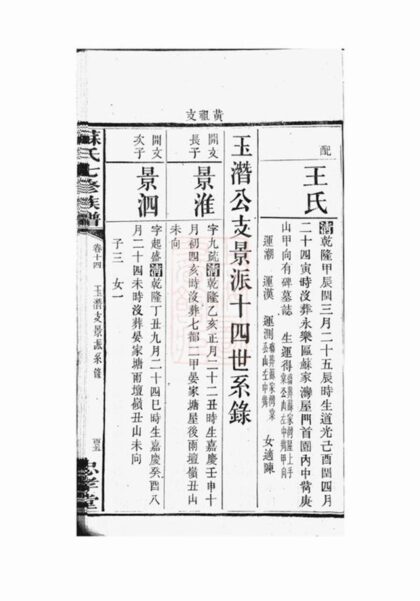 黃祖支
配
王氏
清乾隆甲辰閏三月二十五辰時生道光己酉閏四月
二十四寅時沒葬永樂區蘇家灣屋門首園內中嘴庚
山甲向有碑墓誌　生運得
運潮　運漢　運測　女適陳
玉潛公支景派十四世系錄
開文
長子
景淮
字九疏清乾隆乙亥正月二十二丑時生嘉慶壬申十
月初四亥時沒葬七都二甲晏家塘屋後雨壇嶺丑山
未向
開文
次子
景泗
字起盛清乾隆丁丑九月二十四巳時生嘉慶癸酉八
月二十四未時沒葬晏家塘雨壇嶺丑山未向
子三　女一
蘇氏七修族譜
卷十四　玉潛支景派系錄
忠孝堂